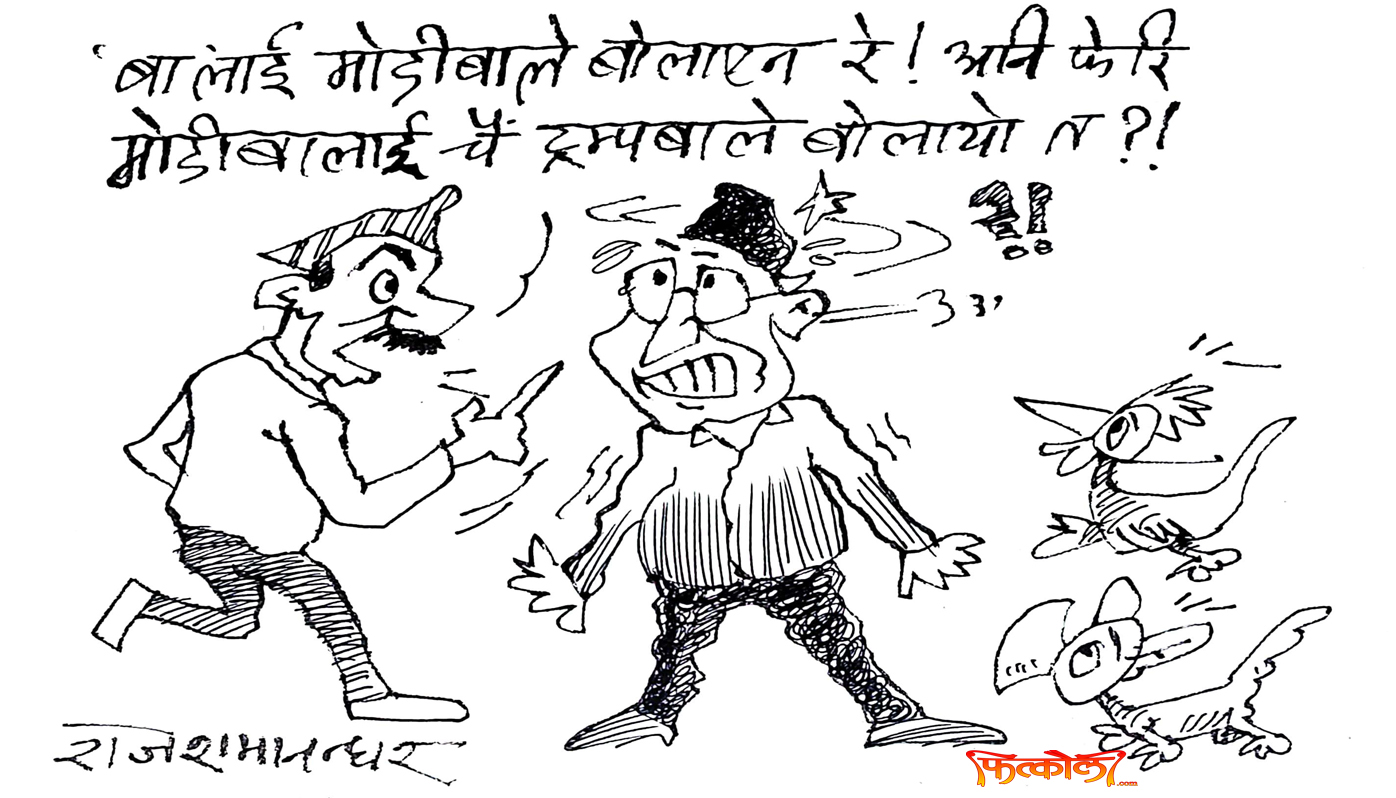 'बा'लाई मोदीबाले बोलाएन रे! अनि फेरि
मोदीबालाई चैं ट्रम्पबाले बोलायो त ?!
?!
राजेशमानन्धर
फत्कौला.com